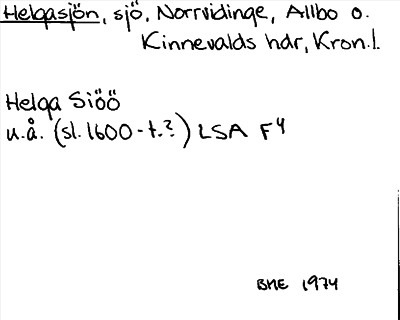 Helgasjön, sjö, Norrvidinge, Allbo o.
Kinnevalds hdr, Kron.l.
Helga Siöö
u.å. (sl. 1600-t.?) LSA F4
BME 1974